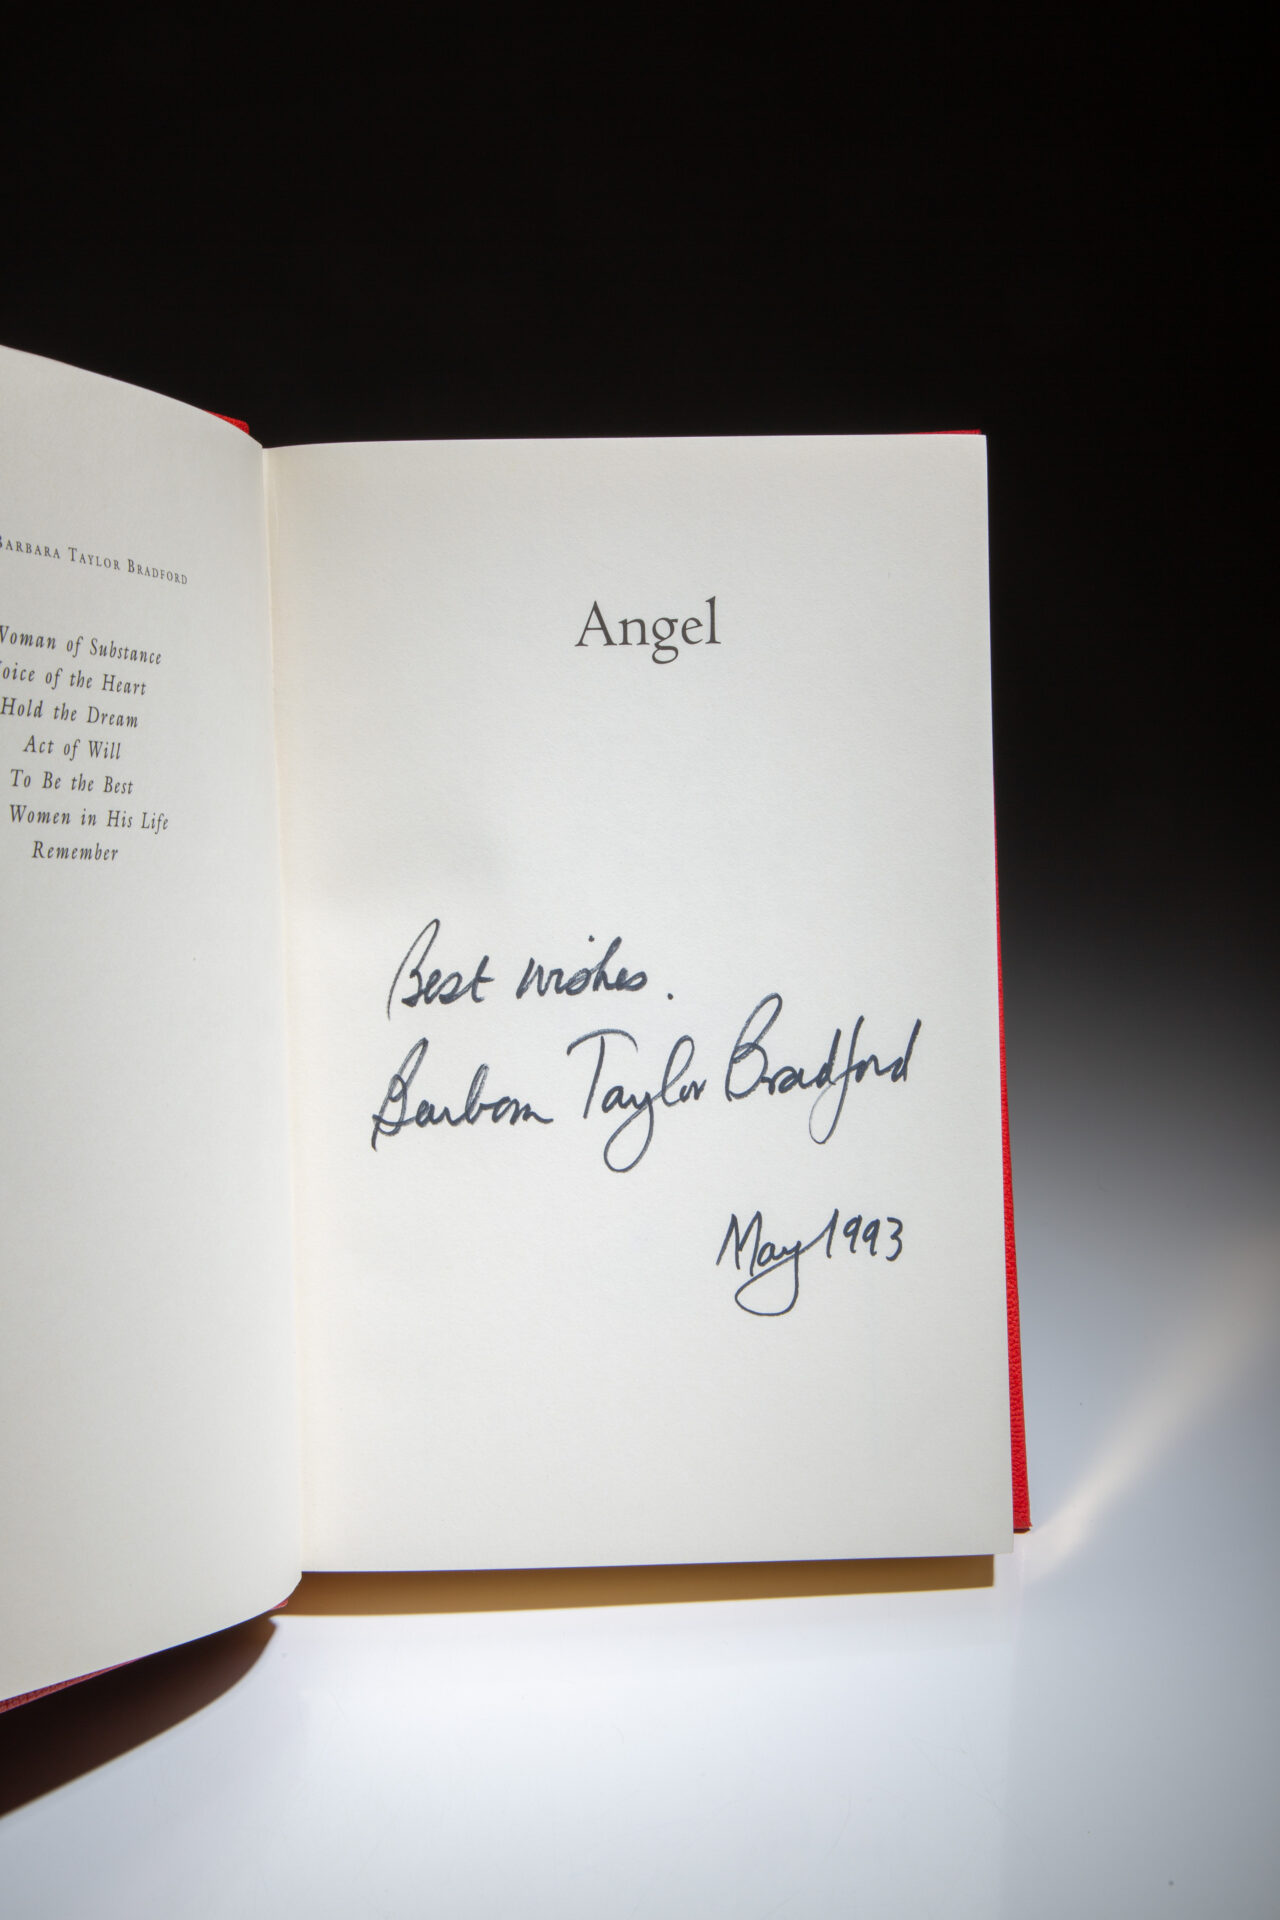 BARBARA TAYLOR BRADFORD
Woman of Substance
Voice of the Heart
Hold the Dream
Act of Will
To Be the Best
Women in His Life
Remember
Angel
Best wishes.
Barbara Taylor Bradford
May 1993